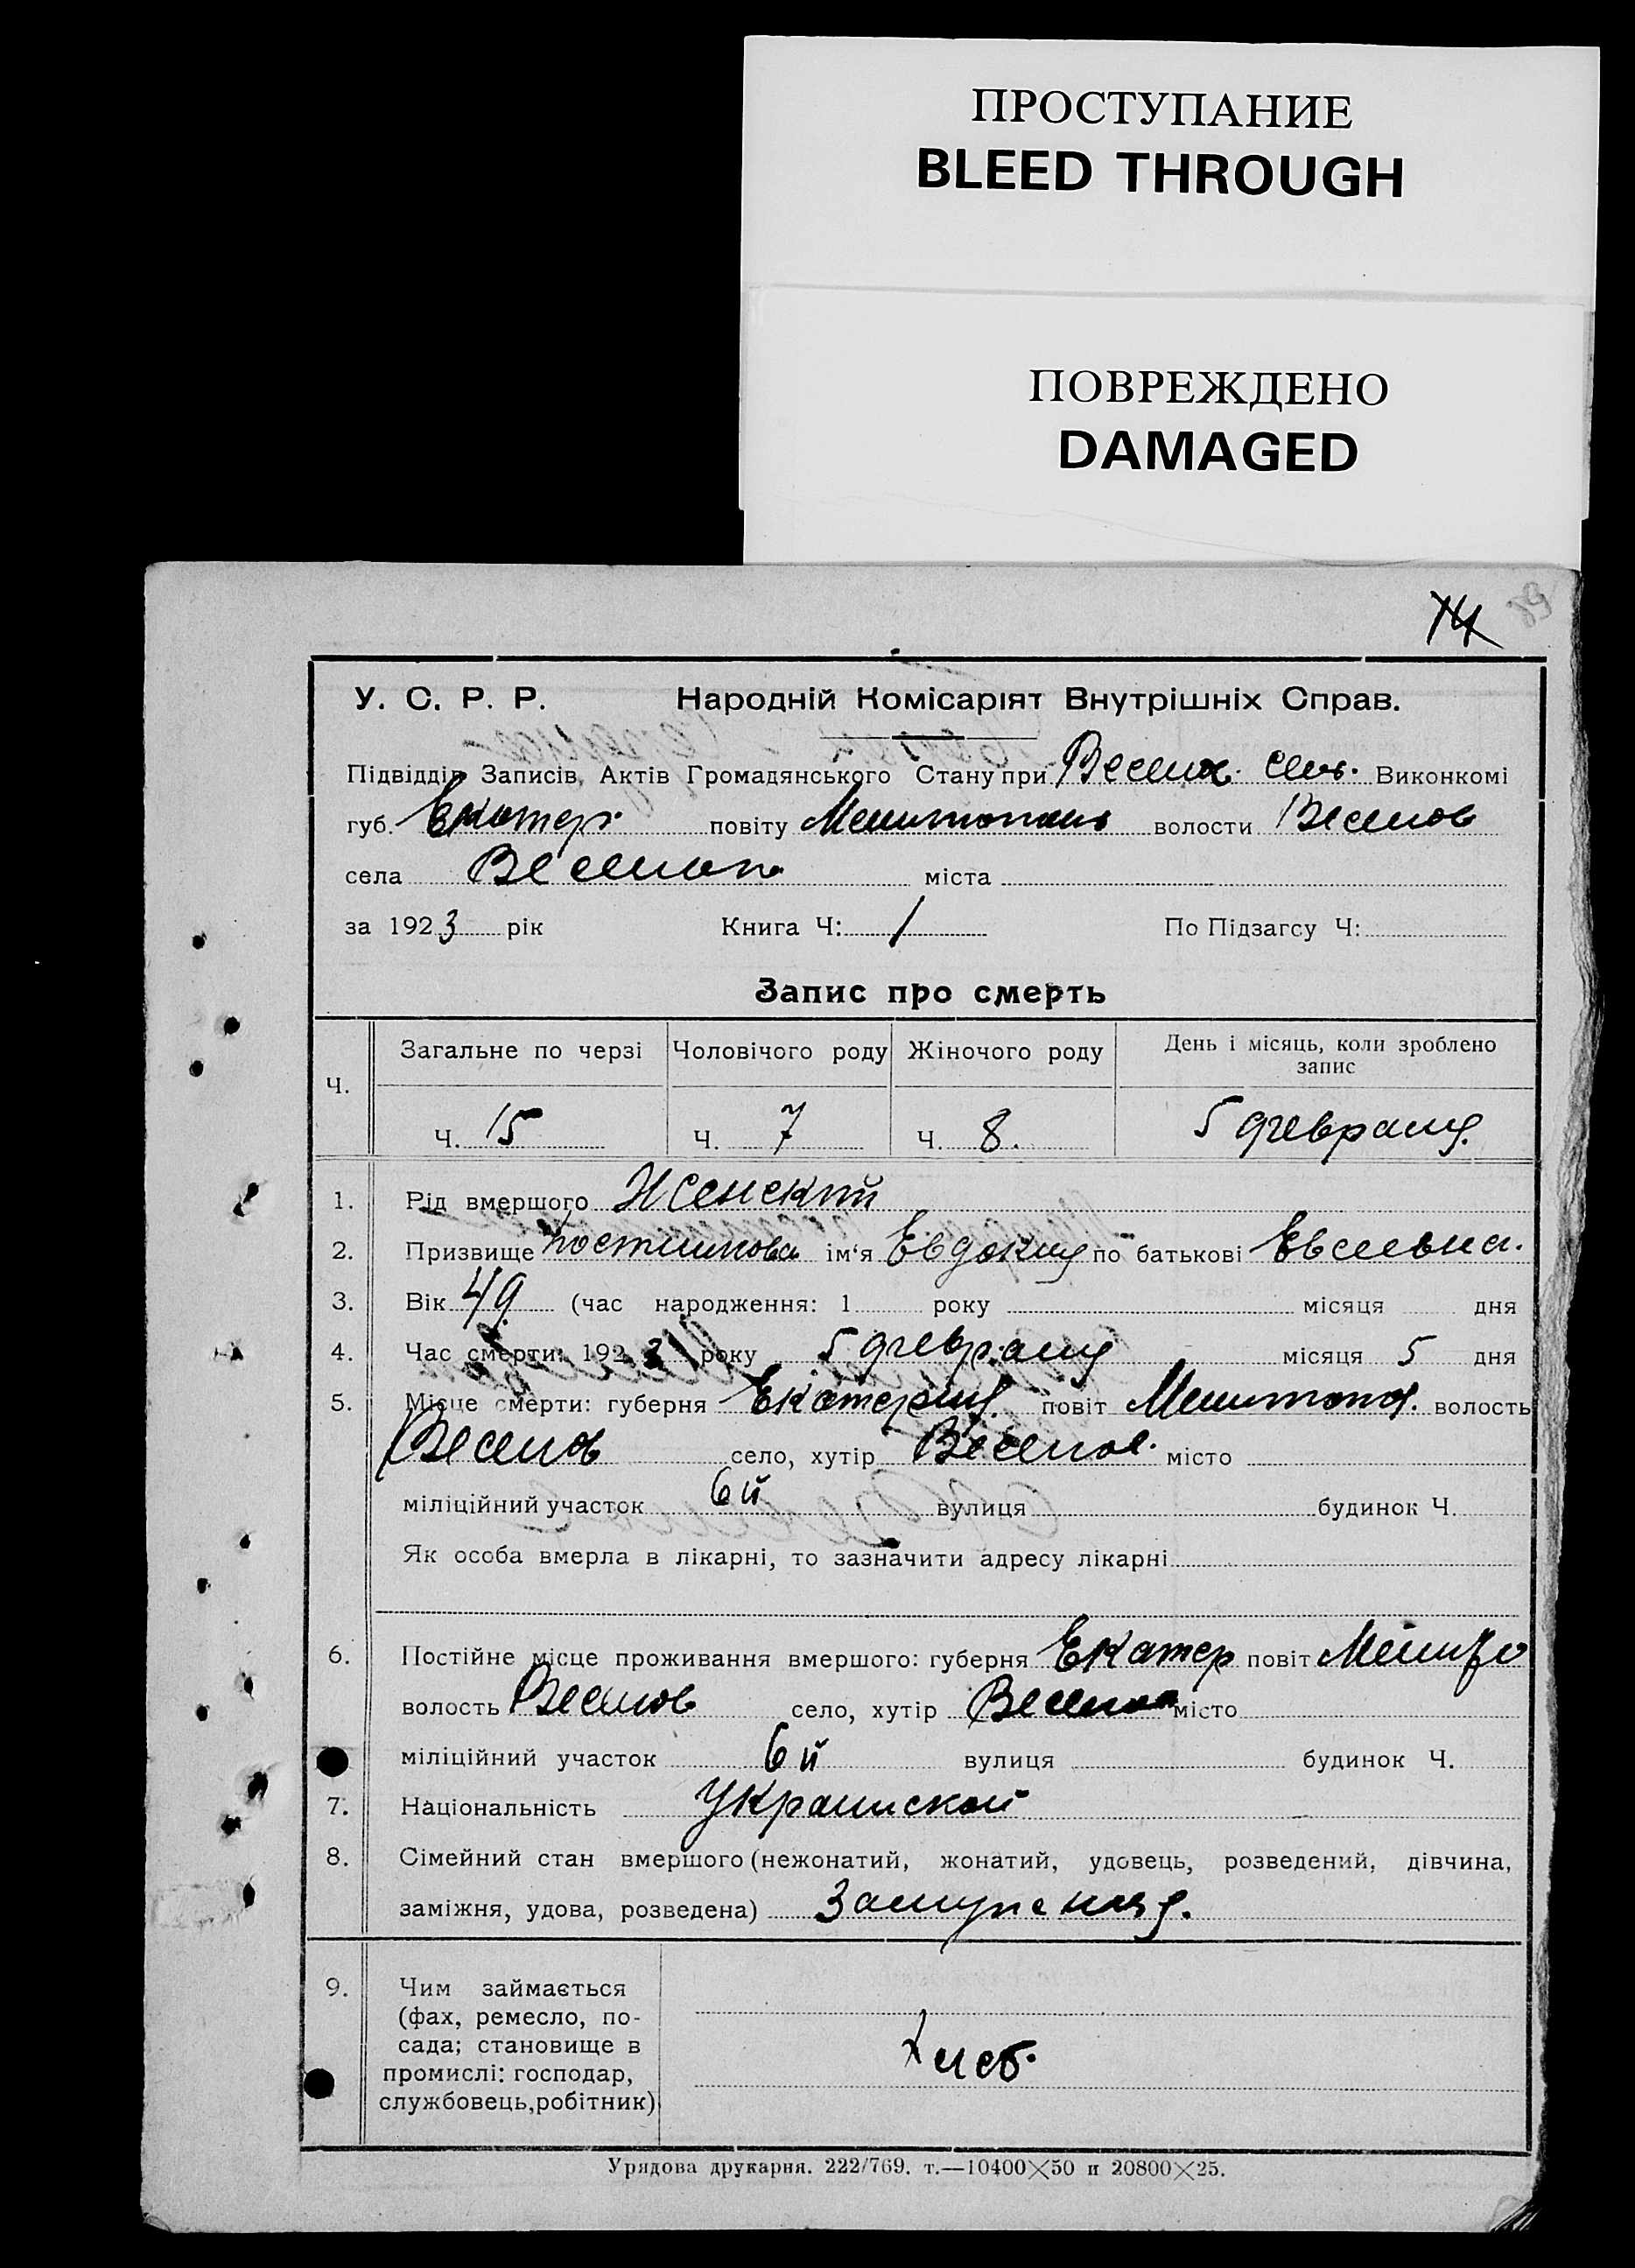 ПРОСТУПАНИЕ
BLEED THROUGH
ПОВРЕЖДЕНО
DAMAGED
74
У. С. Р. Р. Народній Комісаріят Внутрішніх Справ.
Підвідділ Записів Актів Громадянського Стану при Виконкомі
губ. Екатер. повіту волости Веселов
села міста
за 1923 рік Книга Ч: 1 По Підзагсу Ч:
Запис про смерть
Загальне по черзі Чоловічого роду Жіночого роду День і місяць, коли зроблено
запис
Ч.
Ч. 15 Ч. 7 Ч. 8. 5 февраля
1. Рід вмершого Женский
2. Призвище ім'я Евдокия по батькові
3. Вік 49 (час народження: 1 року місяця дня
4. Час смерти: 1923 року 5 февраля місяця 5 дня
5. Місце смерти: губерня повіт волость
Веселов село, хутір Веселое. місто
міліційний участок 6й вулиця будинок Ч.
Як особа вмерла в лікарні, то зазначити адресу лікарні
6. Постійне місце проживання вмершого: губерня Екатер повіт
волость Веселов село, хутір місто
міліційний участок 6й вулиця будинок Ч.
7. Національність
8. Сімейний стан вмершого (нежонатий, жонатий, удовець, розведений, дівчина,
заміжня, удова, розведена)
9. Чим займається
(фах, ремесло, по-
сада; становище в
промислі: господар,
службовець, робітник)
Хлеб.
Урядова друкарня. 222/769. т.—10400×50 и 20800×25.